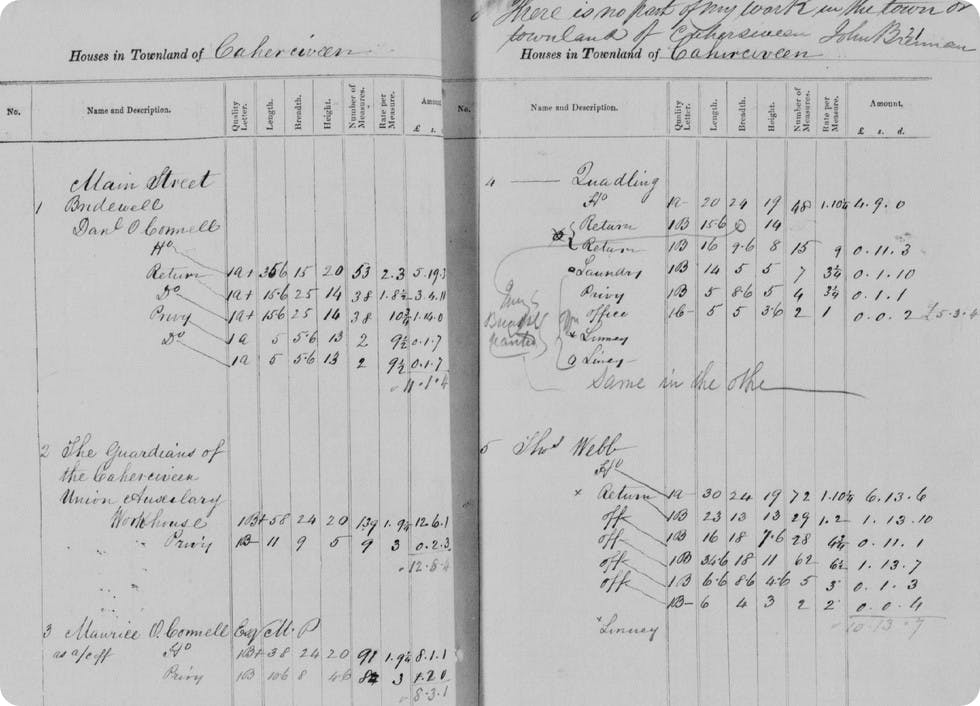 Houses in Townland of Caherciveen
No. Name and Description. Quality Letter. Length. Breadth. Height. Number of Measures. Rate per Measure. Amount. £ s. d.
Main Street
1 Bridewell
Danl O Connell
Ho
Return 1a+ 15 20 53 2.3 5.19.3
Do 1a+ 15.6 25 14 38 1.8½ 3.4.11
Privy 1a+ 15.6 25 14 38 10¾ 1.14.0
Do 1a 5 5.6 13 2 9½ 0.1.7
1a 5 5.6 13 2 9½ 0.1.7
11.1.4
2 The Guardians of
the Caherciveen
Union Auxilary
Workhouse 1B+ 58 24 20 139 1.9¼ 12.6.1
Privy 1B- 11 9 5 9 3 0.2.3
12.8.4
3 Maurice O Connell Esq M.P
as a/c off Ho 1B+ 38 24 20 91 1.9¼ 8.1.1
Privy 1B 10.6 8 4.6 3
8.3.1
There is no part of my work in the town or
townland of Cahersiveen John Brennan
21
Houses in Townland of Caherciveen
No. Name and Description. Quality Letter. Length. Breadth. Height. Number of Measures. Rate per Measure. Amount. £ s. d.
4 Quadling
Ho 1a- 20 24 19 48 1.10¼ 4.9.0
Return 1B 15.6 14
Return 1B 16 9.6 8 15 9 0.11.3
Laundry 1B 14 5 5 7 3¼ 0.1.10
Privy 1B 5 8.6 5 4 3¼ 0.1.1
office 5 5 3.6 2 1 0.0.2 £5.3.4
x Linney
o Liney
Same in the othe
5 Thos Webb
Ho
x Return 1a- 30 24 19 72 1.10¼ 6.13.6
off 1B 23 13 13 29 1.2 1.13.10
off 1B 16 18 7.6 28 0.11.1
off 1B 34.6 18 11 62 6½ 1.13.7
off 1B 6.6 8.6 4.6 5 3 0.1.3
1B- 6 4 3 2 2 0.0.4
10.13.7
x Linney